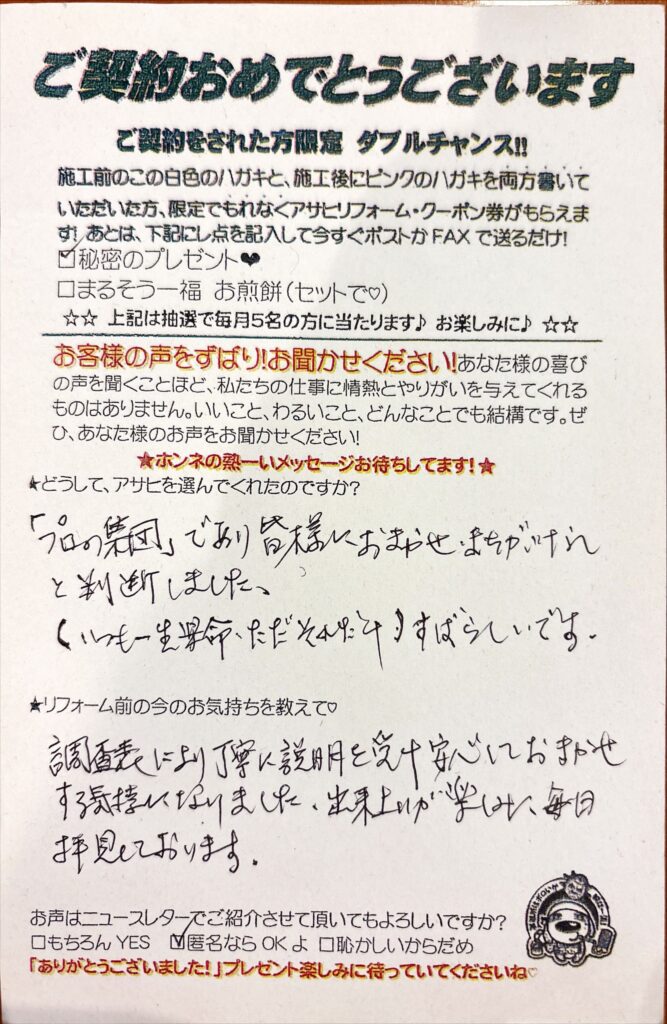 ご契約おめでとうございます
ご契約をされた方限定 ダブルチャンス!!
施工前のこの白色のハガキと、施工後にピンクのハガキを両方書いて
いただいた方、限定でもれなくアサヒリフォーム・クーポン券がもらえま
す! あとは、下記にレ点を記入して今すぐポストかFAXで送るだけ!
☑秘密のプレゼント❤
□まるそう一福 お煎餅(セットで♡)
☆☆ 上記は抽選で毎月5名の方に当たります♪ お楽しみに♪ ☆☆
お客様の声をずばり!お聞かせください!あなた様の喜び
の声を聞くことほど、私たちの仕事に情熱とやりがいを与えてくれる
ものはありません。いいこと、わるいこと、どんなことでも結構です。ぜ
ひ、あなた様のお声をお聞かせください!
★ホンネの熱ーいメッセージお待ちしてます!★
★どうして、アサヒを選んでくれたのですか?
「プロの集団」であり皆様におまかせ、まちがいけられ
と判断しました、
(いつも一生県命、ただそれだけ)すばらしいです。
★リフォーム前の今のお気持ちを教えて♡
調査表により丁寧に説明を受け安心しておまかせ
する気持になりました、出来上りが楽しみ、毎日
拝見しております。
お声はニュースレターでご紹介させて頂いてもよろしいですか?
□もちろん YES ☑匿名なら OK よ □恥かしいからだめ
「ありがとうございました!」プレゼント楽しみに待っていてくださいね♡